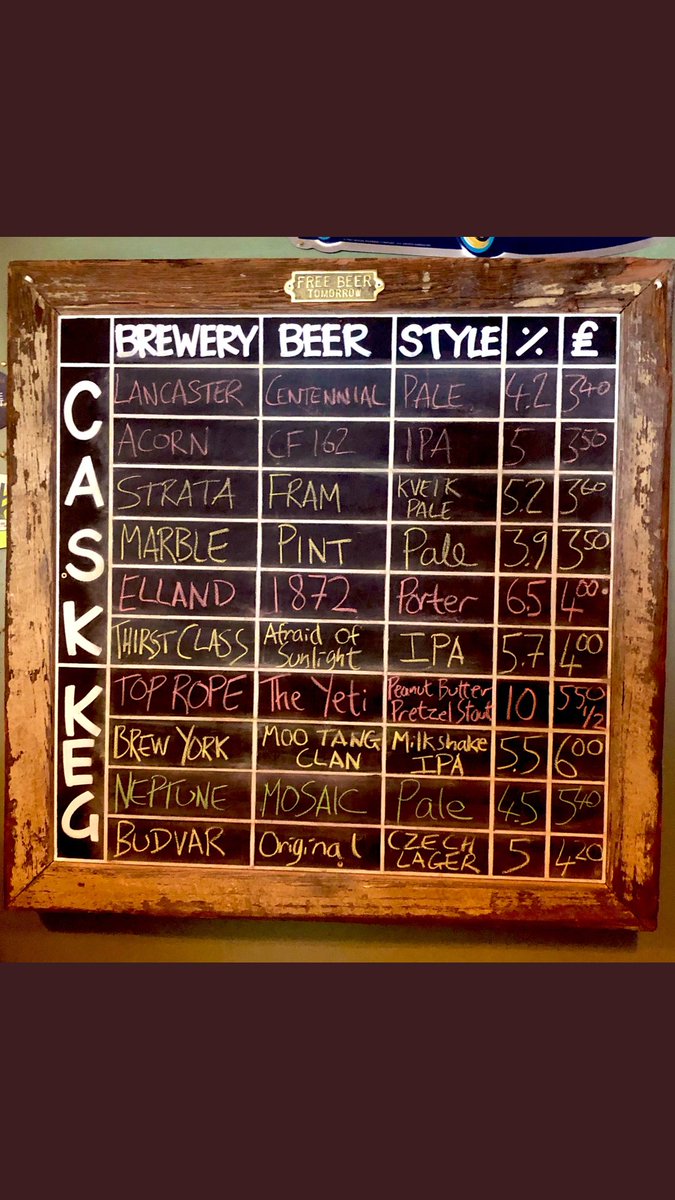 FREE BEER
TOMORROW
BREWERY BEER STYLE % £
CASK
LANCASTER CENTENNIAL PALE 4.2 3.40
ACORN CF162 IPA 5 3.50
STRATA FRAM KVEIK PALE 5.2 3.60
MARBLE PINT Pale 3.9 3.50
ELLAND 1872 Porter 6.5 4.00
THIRST CLASS Afraid of Sunlight IPA 5.7 4.00
KEG
TOP ROPE The Yeti Peanut Butter Pretzel Stout 10 5.50 1/2
BREW YORK MOO TANG CLAN Milkshake IPA 5.5 6.00
NEPTUNE MOSAIC Pale 4.5 5.40
BUDVAR Original CZECH LAGER 5 4.20